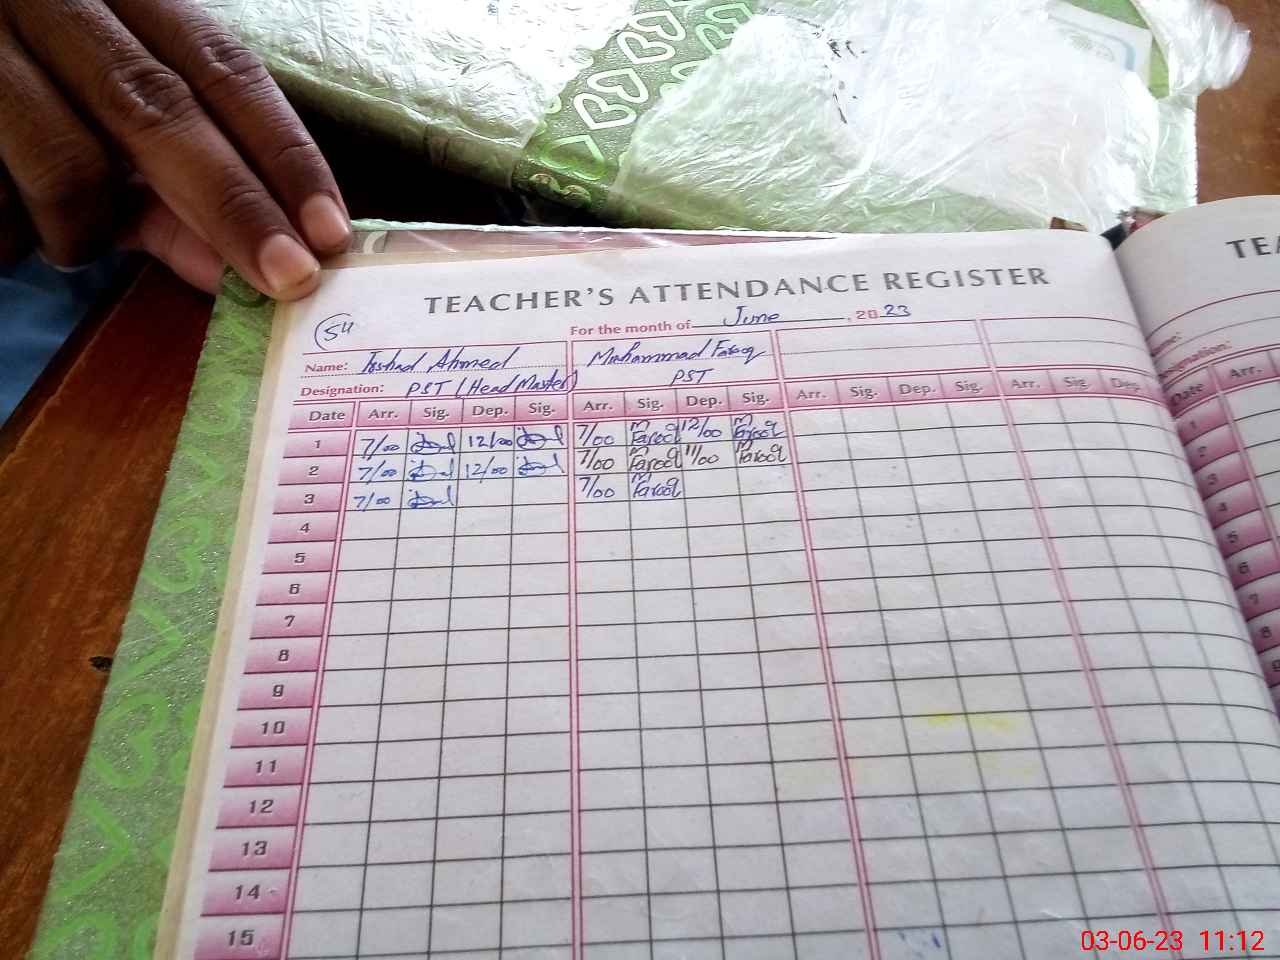 TEACHER'S ATTENDANCE REGISTER
54
For the month of June, 2023
Name: Irshad Ahmed Muhammad Farooq
Designation: PST (Head Master) PST
Date Arr. Sig. Dep. Sig. Arr. Sig. Dep. Sig. Arr. Sig. Dep. Sig. Arr. Sig. Dep.
1 7/00 12/00 7/00 M Farooq 12/00 M Farooq
2 7/00 12/00 7/00 M Farooq 11/00 M Farooq
3 7/00 7/00 M Farooq
4
5
6
7
8
9
10
11
12
13
14
15
TEA
Date Arr.
1
2
3
4
5
6
7
8
03-06-23 11:12